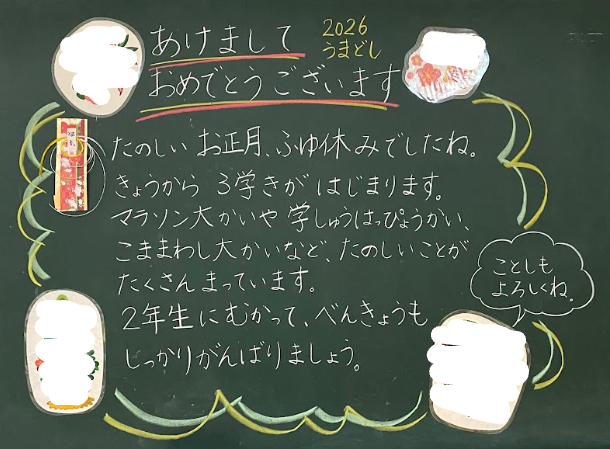 あけまして
おめでとうございます
2026
うまどし
たのしい お正月、ふゆ休みでしたね。
きょうから 3学きが はじまります。
マラソン大かいや 学しゅうはっぴょうかい、
こままわし大かいなど、たのしいことが
たくさん まっています。
2年生に むかって、べんきょうも
しっかりがんばりましょう。
ことしも
よろしくね。